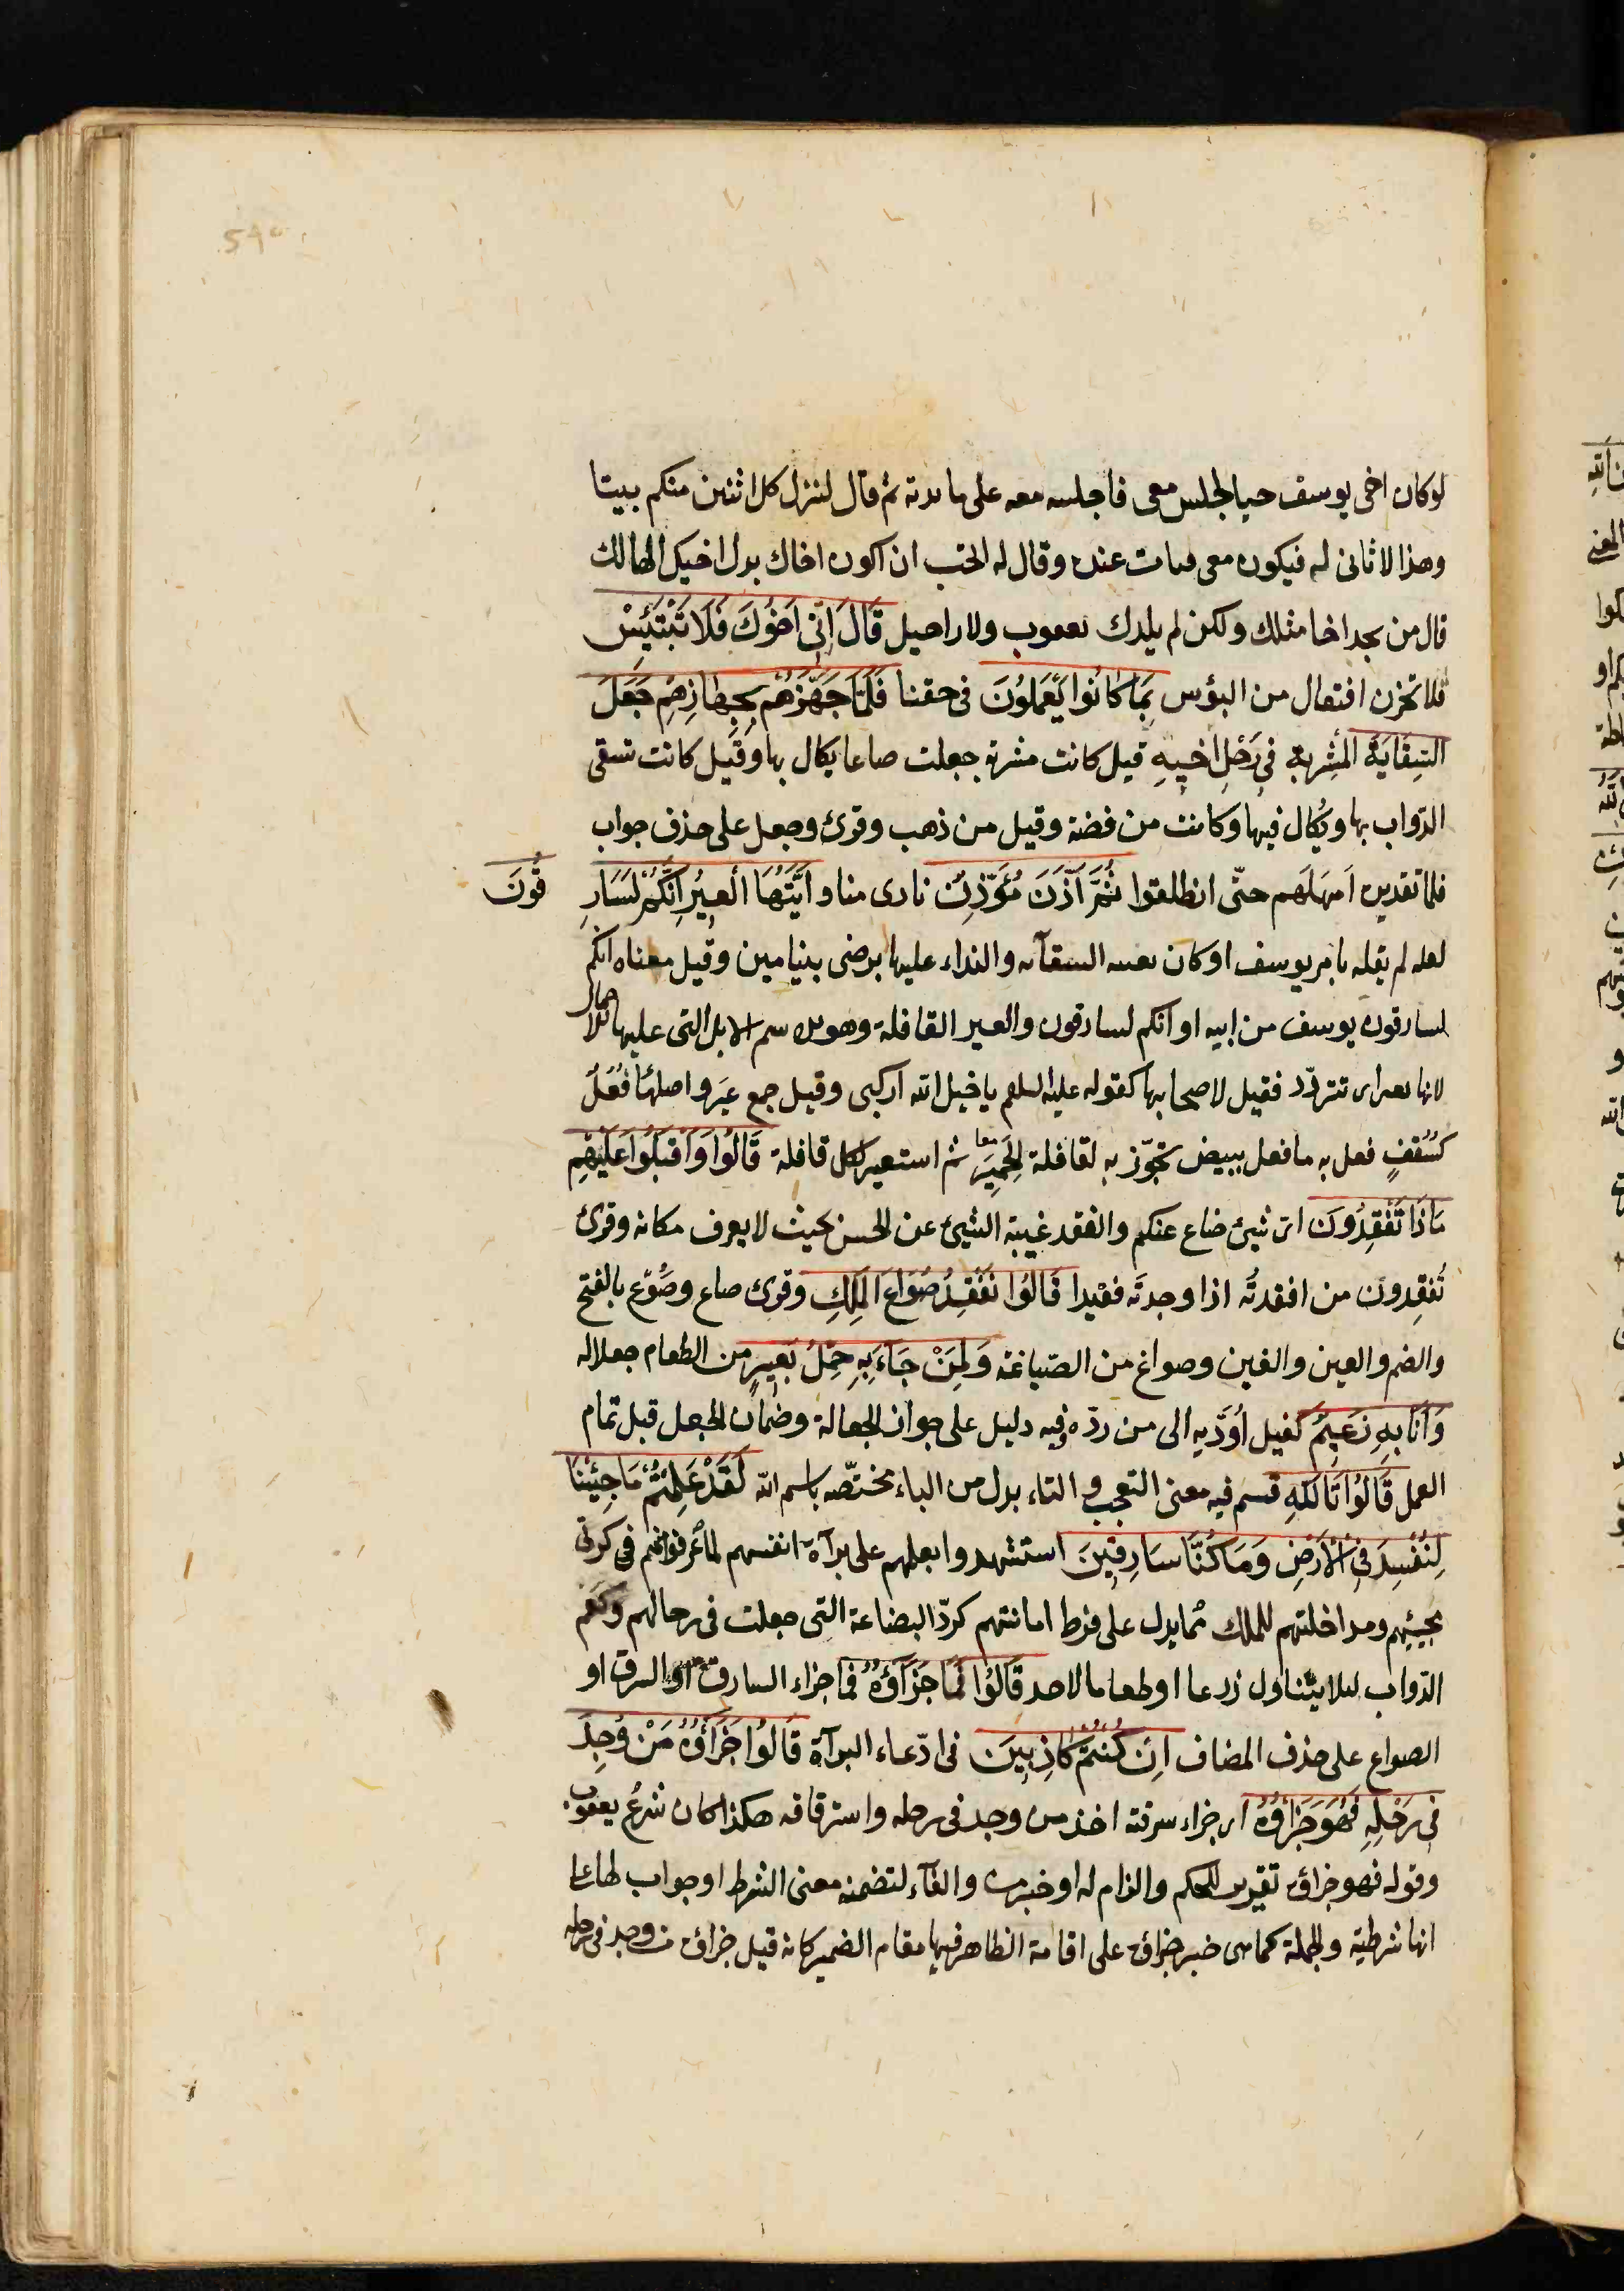 لوكان اخى يوسف حيا لجلس معى فاجلسه معه على مائدته ثم قال لينزل كل اثنين منكم بيتا
وهذا لا ثانى له فيكون معى فبات عنده وقال له اتحب ان اكون اخاك بدل اخيك الهالك
قال من يجد اخا مثلك ولكن لم يلدك يعقوب ولا راحيل قَالَ اِنّى اَخُوكَ فَلَا تَبْتَئِسْ
فلا تحزن افتعال من البؤس بِمَا كَانُوا يَعْمَلُونَ فى حقنا فَلَمَّا جَهَّزَهُمْ بِجَهَازِهِمْ جَعَلَ
السِّقَايَةَ المشربة فى رَحْلِ اَخِيهِ قيل كانت مشربة جعلت صاعا يكال بها وقيل كانت تسقى
الدّواب بها ويُكال فيها وكانت من فضة وقيل من ذهب وقرئ وجعل على حذف جواب
فلما تقديره اَمهَلَهم حتّى انطلقوا ثُمَّ اَذَّنَ مُؤَذِّنٌ نادى مناد اَيَّتُهَا الْعِيرُ اِنَّكُمْ لَسَارِ
قُونَ
لعله لم يقله بامر يوسف او كان تعبية السقاية والنداء عليها برضى بنيامين وقيل معناه انكم
لسارقون يوسف من ابيه او ائنكم لسارقون والعير القافلة وهو اسم الابل التى عليها الاحمال
لانها تعير اى تتردّد فقيل لاصحابها كقوله عليه السلم يا خيل الله اركبى وقيل جمع عَير واصلها فُعُلٌ
كسُقُفٍ فعل به ما فعل ببيض تجوّز به لقافلة الحَمِير ثم استعير لكل قافلة قَالُوا وَاَقْبَلُوا عَلَيْهِمْ
مَاذَا تَفْقِدُونَ اىّ شئ ضاع عنكم والفقد غيبة الشئ عن الحس بحيث لا يعرف مكانه وقرئ
تُفْقِدون من افقدتُه اذا وجدتَه فقيدا قَالُوا نَفْقِدُ صُوَاعَ الْمَلِكِ وقرئ صاع وصَُوْع بالفتح
والضم والعين والغين وصواغ من الصّياغة وَلِمَنْ جَاءَ بِهِ حِمْلُ بَعِيرٍ من الطعام جعلا له
وَاَنَا بِهِ زَعِيمٌ كفيل اُؤدّيه الى من ردّه وفيه دليل على جواز الجعالة وضمان الجعل قبل تمام
العمل قَالُوا تَاللّٰهِ قسم فيه معنى التعجب والتاء بدل من الباء مختصّة باسم الله لَقَدْ عَلِمْتُمْ مَا جِئْنَا
لِنُفْسِدَ فِى الْاَرْضِ وَمَا كُنَّا سَارِقِينَ استشهدوا بعلمهم على براءة انفسهم لما عرفوا منهم فى كرتى
مجيئهم ومداخلتهم للملك مما يدل على فرط امانتهم كردّ البضاعة التى جعلت فى رحالهم وكعم
الدّواب لئلا يتناول زرعا او طعاما لاحد قَالُوا فَمَا جَزَاؤُهُ فما جزاء السارق او السرق او
الصواع على حذف المضاف اِنْ كُنْتُمْ كَاذِبِينَ فى ادّعاء البراءة قَالُوا جَزَاؤُهُ مَنْ وُجِدَ
فِى رَحْلِهِ فَهُوَ جَزَاؤُهُ اى جزاء سرقته اخذ من وجد فى رحله واسترقاقه هكذا كان شرعُ يعقوب
وقوله فهو جزاؤه تقرير للحكم والزام له او خبر من والفاء لتضمنه معنى الشرط او جواب لها على
انها شرطية والجملة كما هى خبر جزاؤه على اقامة الظاهر فيها مقام الضمير كانه قيل جزاؤه من وجد فى رحله